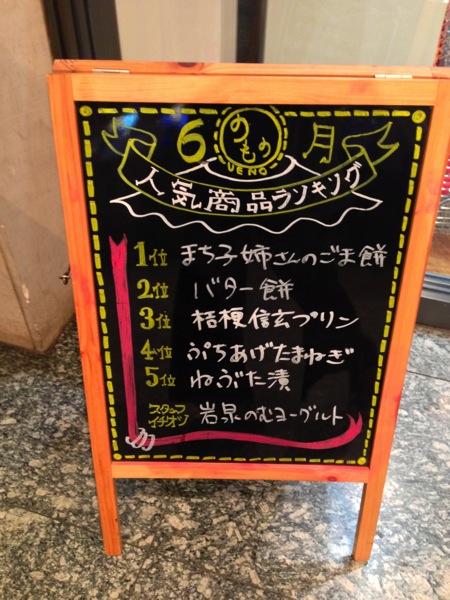 6 のもの 月
UENO
人気商品ランキング
1位 まち子姉さんのごま餅
2位 バター餅
3位 桔梗信玄プリン
4位 ぷちあげたまねぎ
5位 ねぶた漬
スタッフイチオシ 岩泉のむヨーグルト